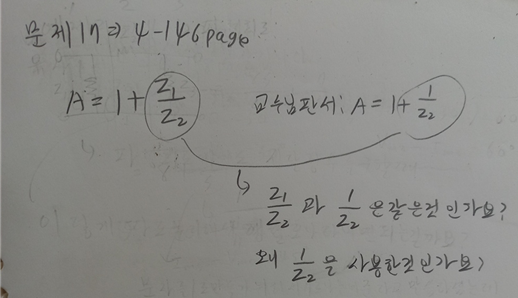 문제17 ⇒ 4-146page
A = 1 + Z₁/Z₂ 교수님판서: A = 1 + 1/Z₂
↳ Z₁/Z₂ 과 1/Z₂ 은같은것인가요?
왜 1/Z₂을 사용한것인가요?